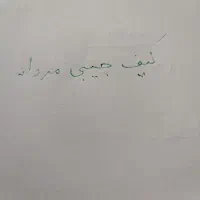 کیف جیبی مردانه